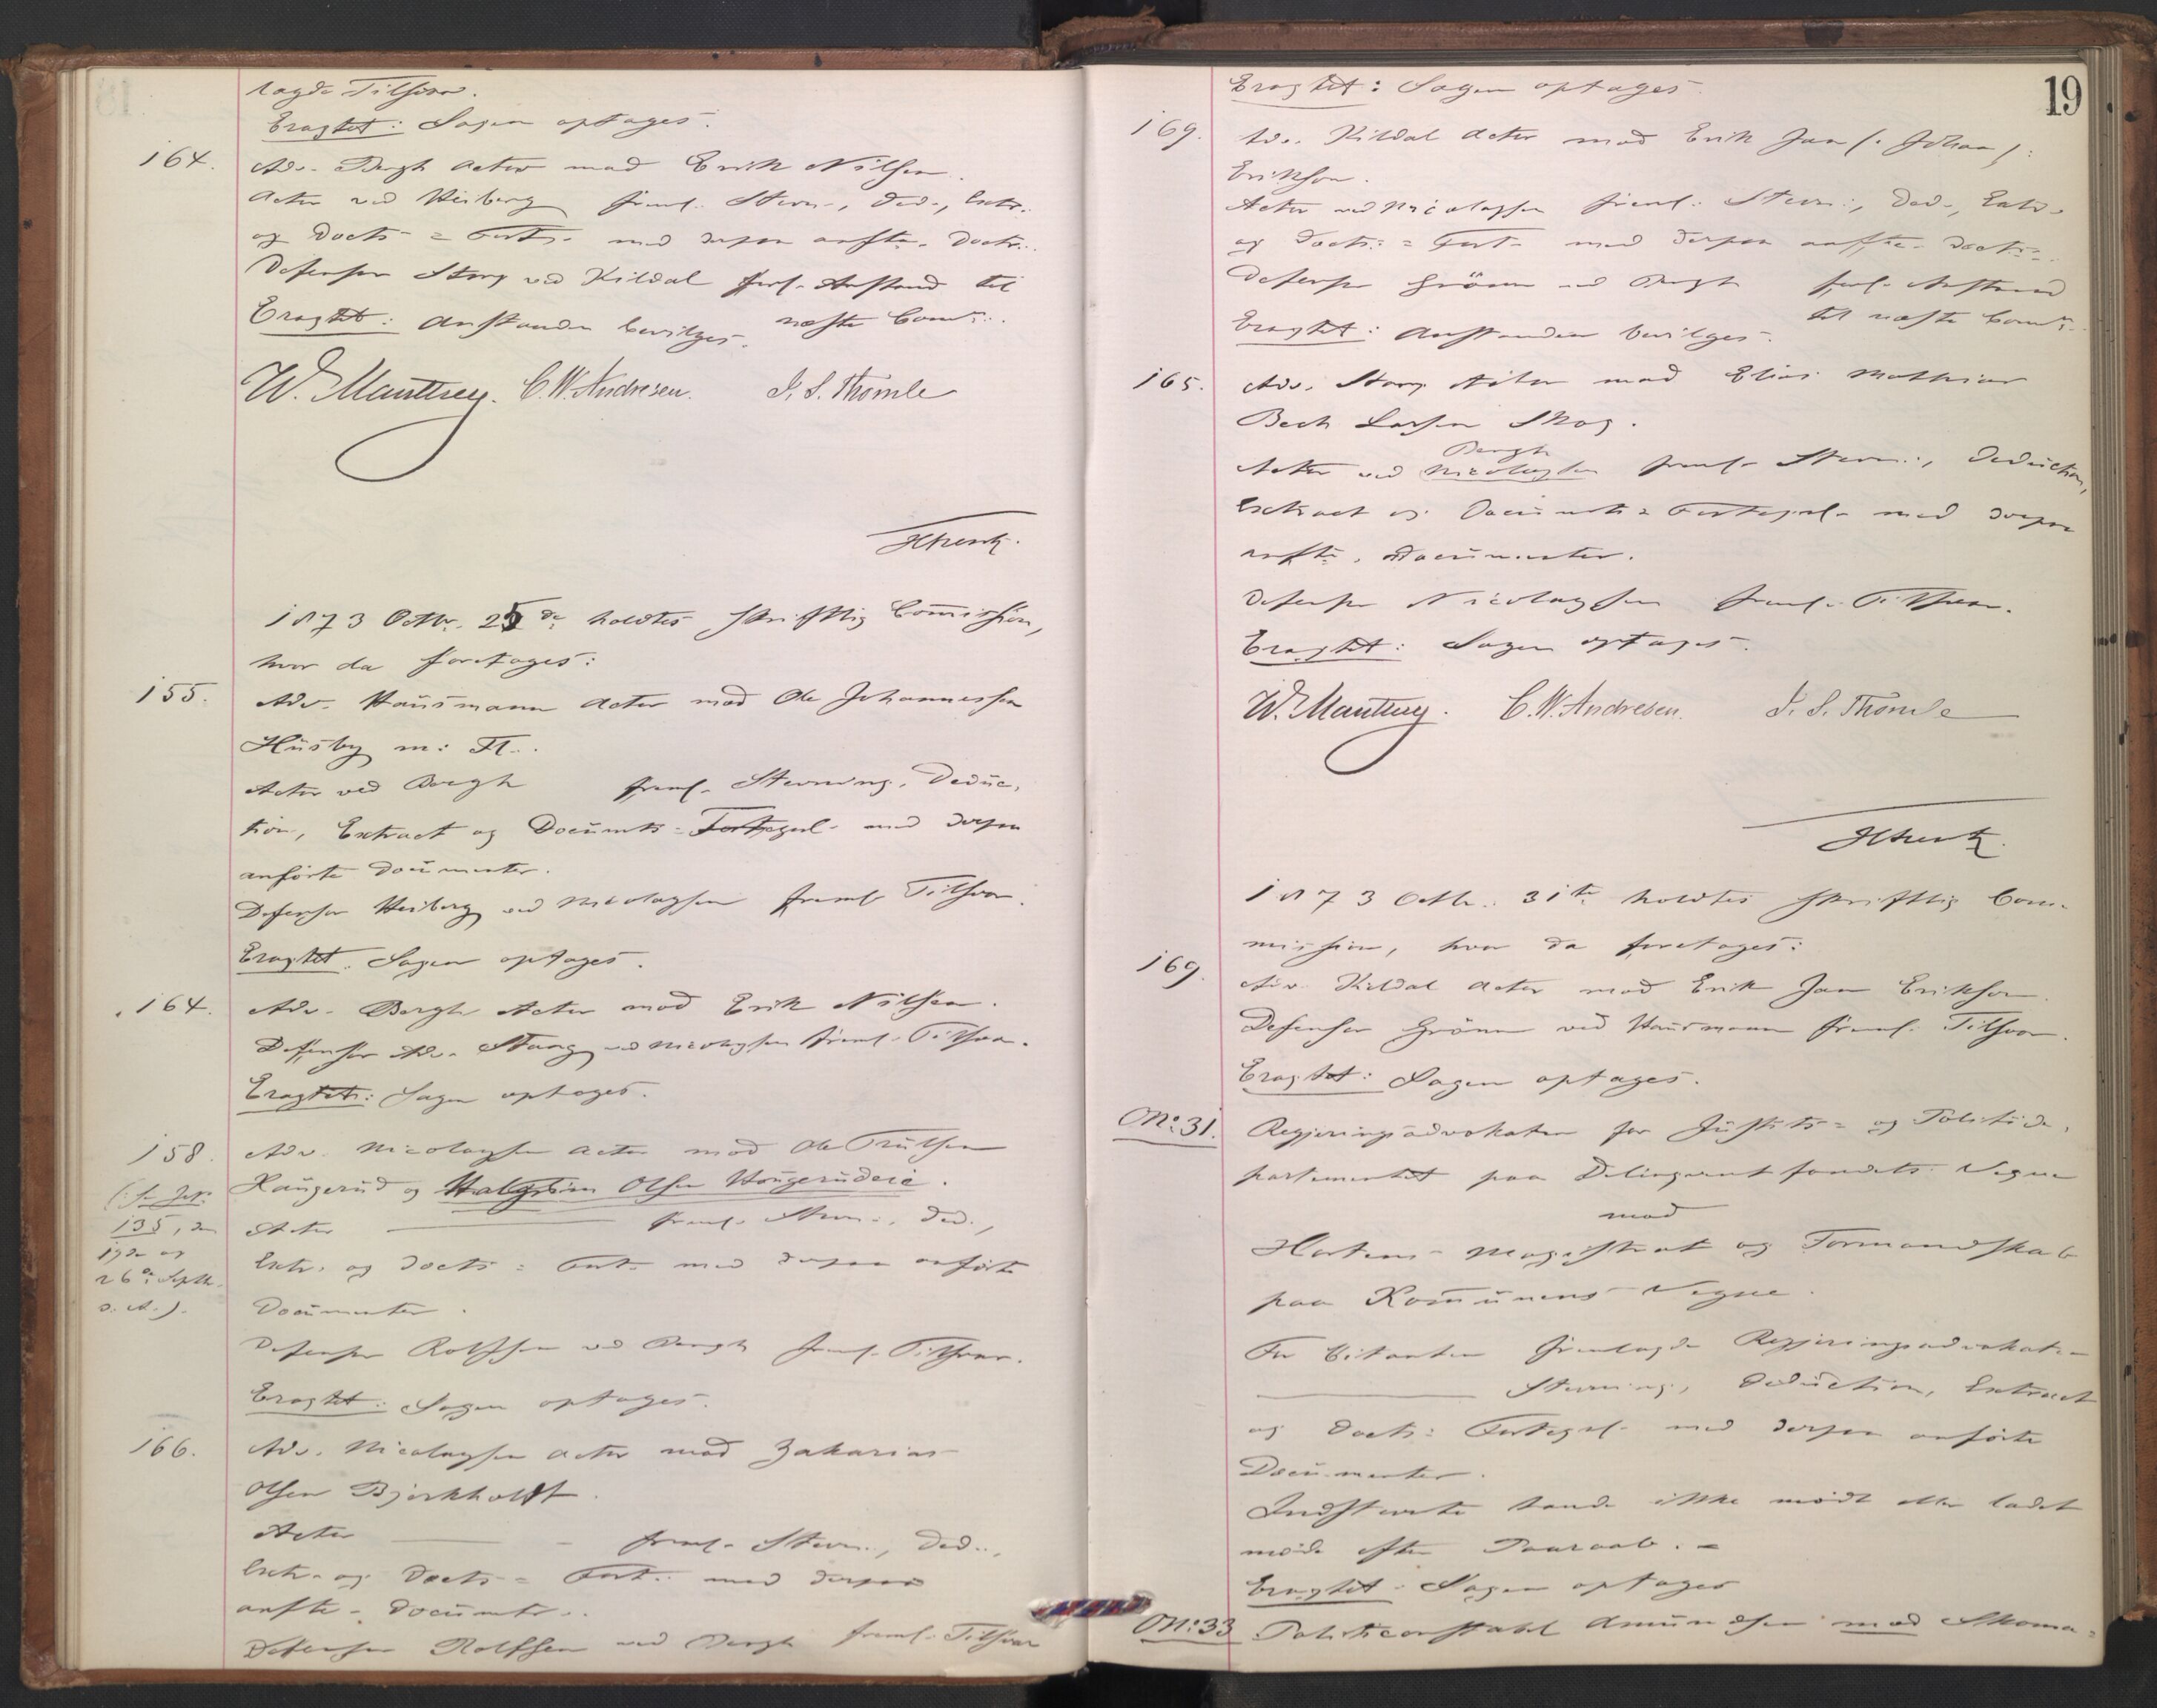 lagde Tilsvar.
Eragtet: Sagen optages.
164. Adv. Bergh Actor mod Erik Nilsen.
Actor ved Heiberg freml. Stevn., Ded., Extr.
og Docts = Fort. med derpaa anfte. Doctr.
Defensor Stang ved Kildal forl. Anstand til
næste Comn.
Eragtet: Anstanden bevilges.
W. Manthey. C. W. Andresen. J. S. Thomle
1873 Octbr. 25de holdtes skriftlig Commission,
hvor da foretoges:
155. Adv. Hausmann Actor mod Ole Johannessen
Husby m: Fl.
Actor ved Bergh freml. Stevning, Deduc-
tion, Extract og Documts = Fortegnl. med derpaa
anførte Documenter.
Defensor Heiberg ved Nicolaysen freml. Tilsvar.
Eragtet. Sagen optages.
164. Adv. Bergh Actor mod Erik Nilsen.
Defensor Adv. Stang ved Nicolaysen freml. Tilsvar.
Eragtet: Sagen optages.
158. Adv. Nicolaysen Actor mod Ole Trulsen
Haugerud og Halgrim Olsen Haugerudeie.
(: se
135, den
19de og
26de Septbr.
d. A.).
Actor freml. Stevn., Ded.,
Extr. og Docts = Fort. med derpaa anførte
Documenter.
Defensor Rolfsen ved Bergh freml. Tilsvar.
Eragtet: Sagen optages.
166. Adv. Nicolaysen Actor mod Zakarias
Olsen Bjerkholdt.
Actor freml. Stevn., Ded.,
Extr. og Docts = Fort. med derpaa
anfte. Documtr.
Defensor Rolfsen ved Bergh freml. Tilsvar
19
Eragtet: Sagen optages.
169. Adv. Kildal Actor mod Erik Jan (: Johan):
Erikson.
Actor ved Nicolaysen freml. Stevn., Ded., Extr.
og Docts. = Fort. med derpaa anfte. Doctr.
Defensor Grönn ved Bergh forl. Anstand
til næste Comn.
Eragtet: Anstanden bevilges.
165. Adv. Stang Actor mod Elias Mathias
Bech Larsen Skog.
Bergh
Actor ved Nicolaysen freml. Stevn., Deduction,
Extract og Documts = Fortegnl. med derpaa
anfte. Documenter.
Defensor Nicolaysen freml. Tilsvar.
Eragtet: Sagen optages.
W. Manthey. C. W. Andresen. J. S. Thomle
1873 Octbr. 31te holdtes skriftlig Com-
mission, hvor da foretoges:
169. Adv. Kildal Actor mod Erik Jan Erikson.
Defensor Grönn ved Hausmann freml. Tilsvar.
Eragtet: Sagen optages.
No: 31. Regjeringsadvokaten for Justits= og Politide-
partementet paa Delinqventfondets Vegne
mod
Hortens Magistrat og Formandskab
paa Kommunens Vegne.
For Citanten fremlagde Regjeringsadvokaten
Stevning, Deduction, Extract
og Docts = Fortegnl. med derpaa anførte
Documenter.
Indstevnte havde ikke mødt eller ladet
møde efter Paaraab. =
Eragtet: Sagen optages
No: 33 Politiconstabel Amundsen mod Skoma=